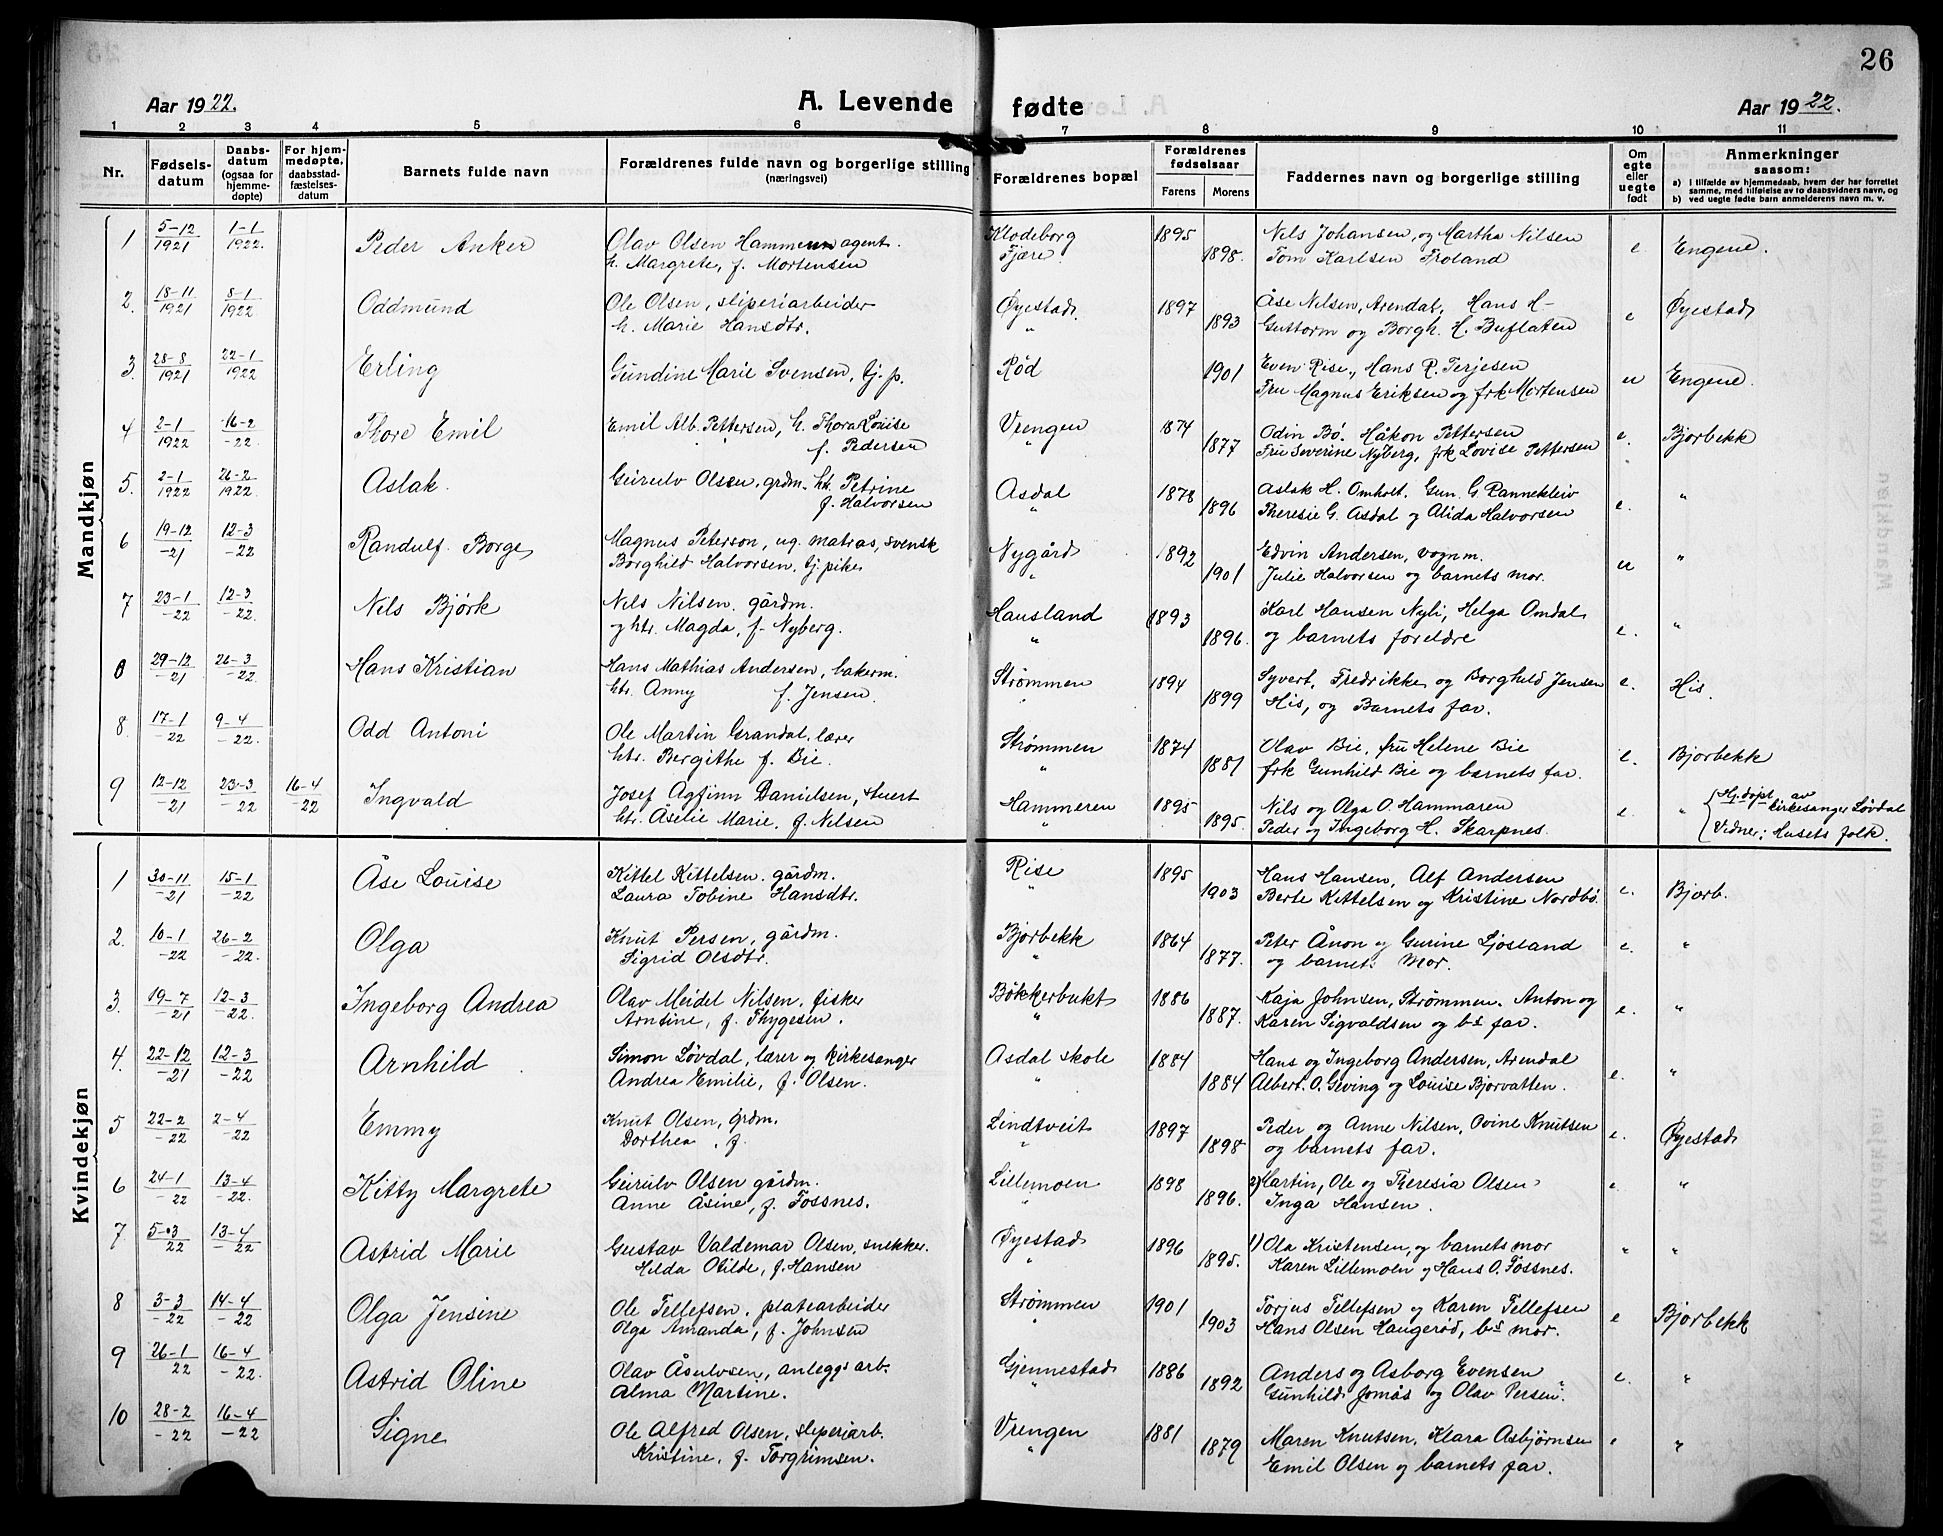 26
Aar 1922. A. Levende fødte Aar 1922.
1 2 3 4 5 6 7 8 9 10 11
Nr. Fødselsdatum Daabsdatum (ogsaa for hjemmedøpte) For hjemmedøpte, daabsstadfæstelsesdatum Barnets fulde navn Forældrenes fulde navn og borgerlige stilling (næringsvei) Forældrenes bopæl Forældrenes fødselsaar Farens Morens Faddernes navn og borgerlige stilling Om egte eller uegte født Anmerkninger saasom:
a) I tilfælde av hjemmedaab, hvem der har forrettet samme, med tilføielse av to daabsvidners navn, og
b) ved uegte fødte barn anmelderens navn m. v.
Mandkjøn
1 5-12 1921 1-1 1922 Peder Anker Olav Olsen Hammeren agent. Klodeborg 1895 Nels Johansen, og Martha Nilsen e Engene.
h. Margrete, f. Mortensen Fjære 1898. Tom Karlsen Froland
2. 18-11 1921 8-1 1922 Oddmund Ole Olsen, sliperiarbeider Øyestad. 1897 Åse Nilsen, Arendal, Hans H- e Øyestad
h. Marie Hansdtr. " 1893 Guttorm og Borgh. H. Buflaten
3. 28-8 1921 22-1 1922 Erling Gundine Marie Svensen, tj. p. Rød 1901 Even Rise, Hans R. Terjesen u Engene.
Fru Magnus Eriksen og frk Mortensen
4 2-1 1922 16-2 -22 Thore Emil Emil Alb. Pettersen, h. Thora Louise Vrengen 1874 Odin Bø. Håkon Pettersen e. Bjorbekk
f. Pedersen 1877 Fru Severine Nyberg, frk Lovise Pettersen
5. 2-1 1922 26-2 1922 Aslak Geirulv Olsen, grdm. htr. Petrine Asdal 1878 Aslak H. Omholt. Gun. G Rannekleiv e. "
f. Halvorsen " 1896 Theresie G. Asdal og Alida Halvorsen
6 19-12 -21 12-3 -22 Randulf Borge Magnus Peterson, ug. matros, svensk Nygård 1892 Edvin Andersen, vognm. u "
Borghild Halvorsen, tj. pike " 1901 Julie Halvorsen og barnets mor.
7 23-1 -22 12-3 -22. Nils Bjørk Nils Nilsen. gårdm. Hausland 1893 Karl Hansen Nyli, Helga Omdal e. "
og htr. Magda, f. Nyberg. " 1896. og barnets foreldre
0 29-12 -21 26-3 -22. Hans Kristian Hans Mathias Andersen, bakerm. Strømmen 1894 Syvert, Fredrikke og Borghild Jensen e. His.
htr. Anny f. Jensen. 1899 His, og Barnets far.
8. 17-1 -22 9-4 -22. Odd Antoni Ole Martin Grandal, lærer Strømmen 1874 Olav Bie, fru Helene Bie e. Bjorbekk
htr. Bergithe f. Bie. " 1881 frk Gunhild Bie og barnets far.
9 12-12 -21 23-3 -22 16-4 -22 Ingvald Josef Agfinn Danielsen, stuert Hammeren 1895 Nils og Olga O. Hammaren e. " Hj. døpt av kirkesanger Løvdal
htr. Åselie Marie, f. Nilsen " 1895. Peder og Ingeborg H. Skarpnes. Vidner; Husets folk.
Kvindekjøn
1 30-11 -21 15-1 -22 Åse Louise Kittel Kittelsen. gårdm. Rise 1895 Hans Hansen, Alf Andersen e. Bjorb.
Laura Tobine Hansdtr. " 1903 Berte Kittelsen og Kristine Nordbø.
2. 10-1 -22 26-2 -22. Olga Knut Persen, gårdm. Bjorbekk 1864 Peter Ånon og Gurine Ljosland e. "
Sigrid Olsdtr. " 1877. og barnets mor.
3. 19-7 -21 12-3 -22. Ingeborg Andrea Olav Meidel Nilsen, fisker Bøkkerbukt 1886 Kaja Johnsen, Strømmen. Anton og e. "
Arntine, f. Thygesen. " 1887. Karen Sigvaldsen og bs far.
4. 22-12 -21 12-3 -22 Arnhild Simon Løvdal, lærer og kirkesanger Asdal skole 1884 Hans og Ingeborg Andersen, Arendal e. "
Andrea Emilie, f. Olsen. " 1884 Albert. O. Geving og Louise Bjorvatten.
5 22-2 -22 2-4 -22 Emmy Knut Olsen, grdm. Lindtveit 1897 Peder og Anne Nilsen, Ovine Knutsen e. Øyestad
Dorthea, f. " 1898 og barnets far.
6 24-1 22 13-4 -22. Kitty Margrete Geirulv Olsen gårdm. Lillemoen 1898 2) Martin, Ole og Theresia Olsen e. "
Anne Åsine, f. Fossnes. 1896. Inga Hansen.
7 5-3 22 13-4 -22 Astrid Marie Gustav Valdemar Olsen, snekker. Øyestad 1896 1) Ola Kristensen, og barnets mor " "
Hilda Otilde, f. Hansen " 1895. Karen Lillemoen og Hans O. Fossnes.
8 3-3 -22 14-4 -22 Olga Jensine Ole Tellefsen, platearbeider Strømmen 1901 Torjus Tellefsen og Karen Tellefsen e Bjorbekk
Olga Amanda, f. Johnsen " 1903 Hans Olsen Haugerød, bs mor.
9 26-1 22 16-4 -22. Astrid Oline Olav Åsulvsen, anleggsarb. Gjennestad 1886 Anders og Asborg Evensen e. "
Alma Martine. " 1892 Gunhild Jomås og Olav Persen.
10 28-2 -22 16-4 -22 Signe Ole Alfred Olsen, sliperiarb. Vrengen 1881 Maren Knutsen, Klara Asbjørnsen e "
Kristine, f. Torgrimsen. " 1879 Emil Olsen og barnets far.